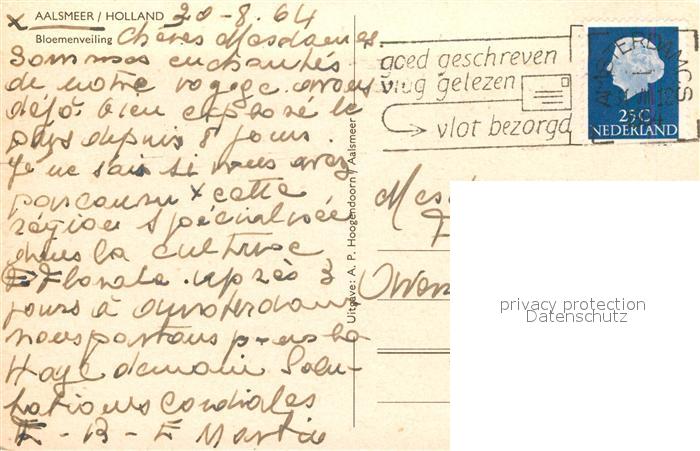 x AALSMEER / HOLLAND 20-8.64
Bloemenveiling Chères Mesdames.
Sommes enchantés
de notre voyage. avons
déjà bien exploré le
pays depuis 8 jours.
Je ne sais si vous avez
parcouru x cette
région spécialisée
dans la culture
Florale. après 3
jours à Amsterdam,
nous partons p-
Haye demain Salu-
tations Cordiales
- B - E Martin
Uitgave: A. P. Hoogendoorn, Aalsmeer
goed geschreven
vlug gelezen
vlot bezorgd
AMSTERDAM C.S
25C
NEDERLAND
privacy protection
Datenschutz